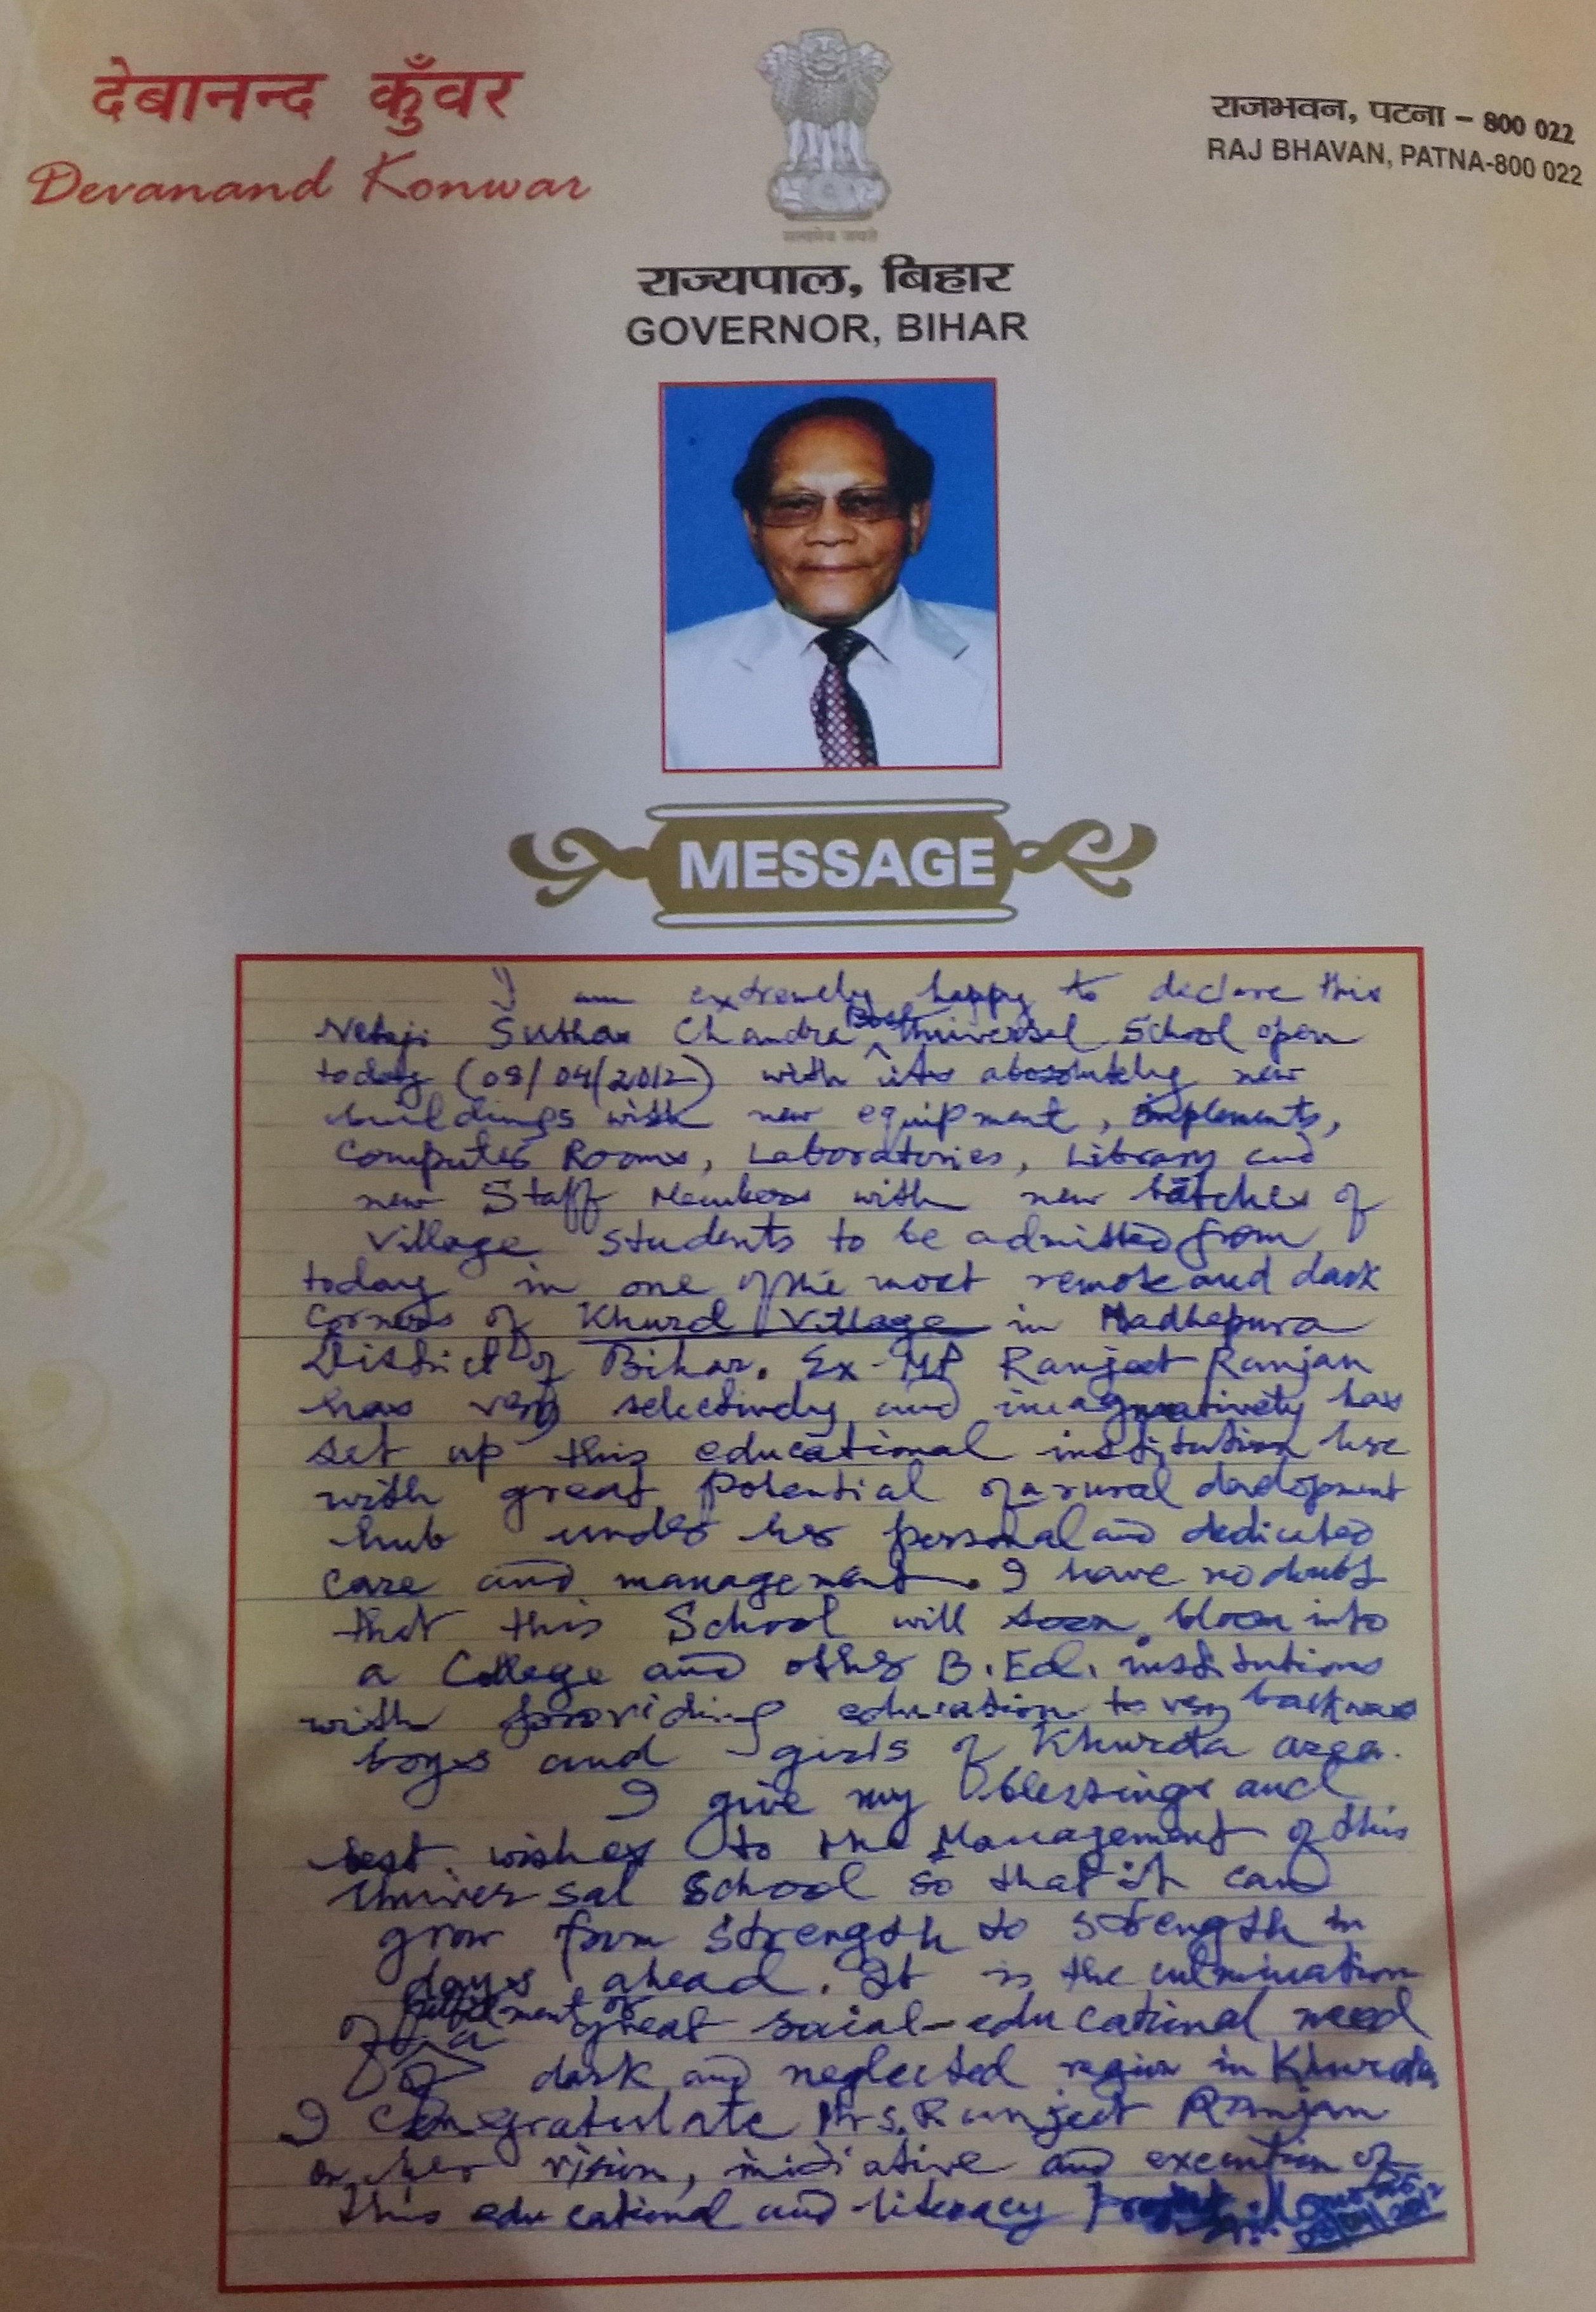 देबानन्द कुँवर
Devanand Konwar
सत्यमेव जयते
राजभवन, पटना – 800 022
RAJ BHAVAN, PATNA-800 022
राज्यपाल, बिहार
GOVERNOR, BIHAR
MESSAGE
I am extremely happy to declare this
Netaji Suthas Chandra Bosh Universal School open
today (08/04/2012) with its absolutely new
buildings with new equipment, implements,
Computer Rooms, Laboratories, Library and
new Staff Members with new batches of
village students to be admitted from
today in one of the most remote and dark
corners of Khurd Village in Madhepura
District of Bihar. Ex-MP Ranjeet Ranjan
has very selectively and imaginatively has
set up this educational institution here
with great potential of a rural development
hub under her personal and dedicated
care and management. I have no doubt
that this School will soon bloom into
a College and other B.Ed. institutions
with providing education to very backward
boys and girls of Khurda area.
I give my blessings and
best wishes to the Management of this
Universal School so that it can
grow from strength to strength in
days ahead. It is the culmination
of fulfilment of
a great social-educational need
of dark and neglected region in Khurda
I congratulate Mrs. Runjeet Ranjan
on her vision, initiative and execution of
this educational and literacy